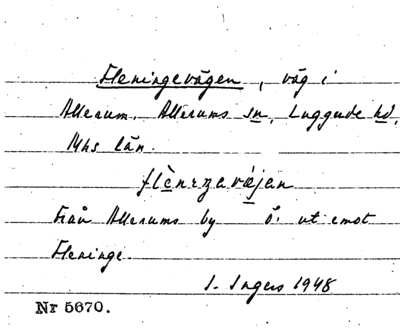 Fleningevägen, väg i
Allerum, Allerums sn, Luggude hd,
Mhs län.
Från Allerums by Ö. ut emot
Fleninge.
I. Ingers 1948
Nr 5670.